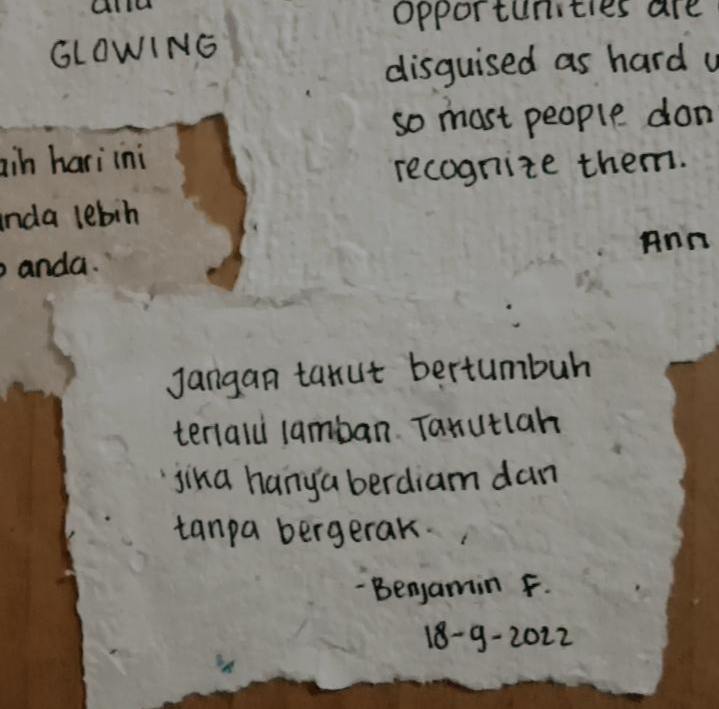 and
GLOWING
opportunities are
disguised as hard
so most people don
recognize them.
Ann
hari ini
lebih
anda.
Jangan takut bertumbuh
terlalu lamban. Takutlah
jika hanya berdiam dan
tanpa bergerak.
-Benjamin F.
18-9-2022